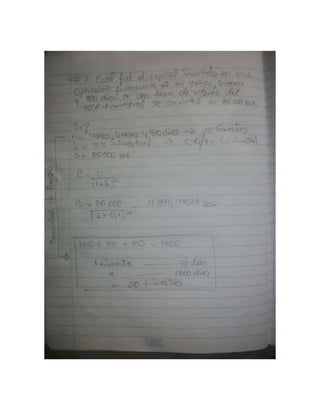 # 2 Cual fué el capital invertido en una
operación financiera si en 4 años, 6 meses
y 180 días a una tasa de interes del
40% trimestral se convirtio en 80.000 Bsf.
C = ?
n = 4 años, 6 meses y 180 días => 20 trimestres
i = 40% trimestral => 0,40/4 = 0,1
S = 80000 Bsf
C = S
(1+i)
C = 80.000 = 11.891, Bsf
(1+0,1)
= 1800
1 trimestre 90 días
x 1800 días
= 20 trimestres